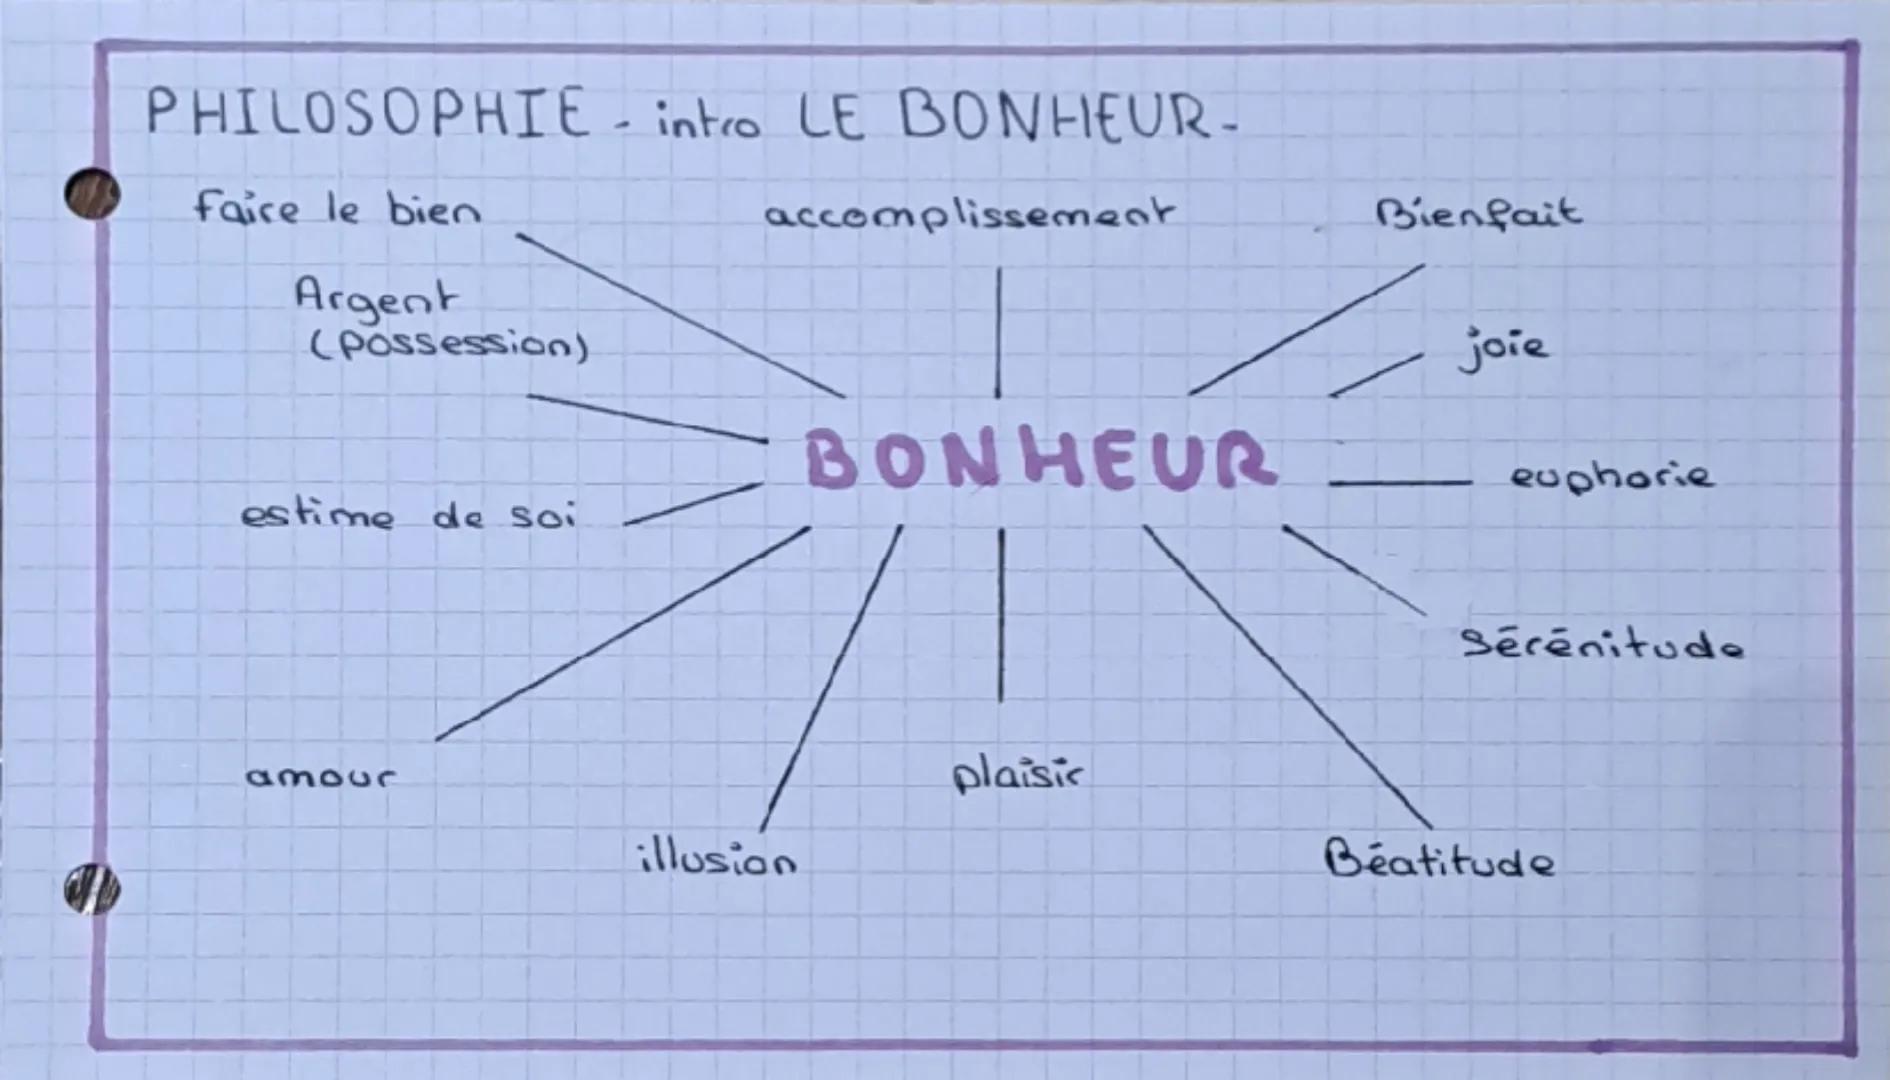 PHILOSOPHIE - intro LE BONHEUR -
faire le bien
accomplissement
Bienfait
Argent
(possession)
joie
BONHEUR
euphorie
estime de soi
Sérénitude
amour
plaisir
illusion
Béatitude